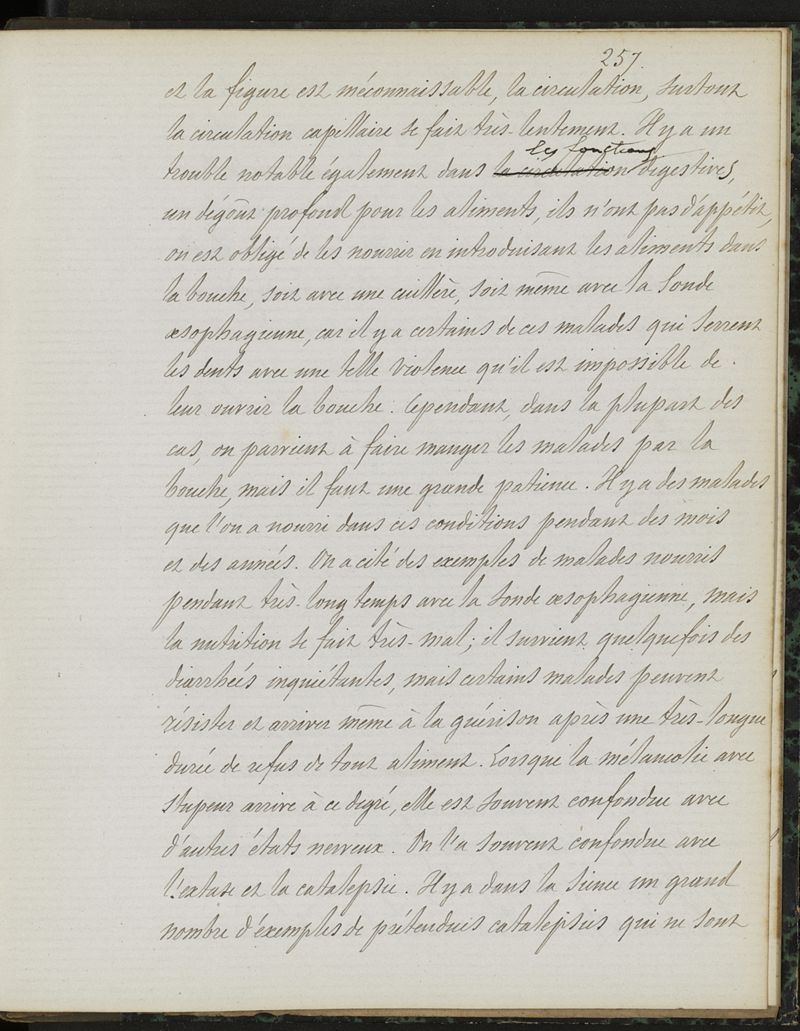 257
et la figure est méconnaissable, la circulation, surtout
la circulation capillaire se fait très-lentement. Il y a un
les fonctions
trouble notable également dans la circulation digestives,
un dégoût profond pour les aliments, ils n'ont pas d'appétit,
on est obligé de les nourrir en introduisant les aliments dans
la bouche, soit avec une cuillère, soit même avec la sonde
œsophagienne, car il y a certains de ces malades qui serrent
les dents avec une telle violence qu'il est impossible de
leur ouvrir la bouche. Cependant, dans la plupart des
cas, on parvient à faire manger les malades par la
bouche, mais il faut une grande patience. Il y a des malades
que l'on a nourri dans ces conditions pendant des mois
et des années. On a cité des exemples de malades nourris
pendant très-long temps avec la sonde œsophagienne, mais
la nutrition se fait très-mal; il survient quelquefois des
diarrhées inquiétantes, mais certains malades peuvent
résister et arriver même à la guérison après une très-longue
durée de refus de tout aliment. Lorsque la mélancolie avec
stupeur arrive à ce degré, elle est souvent confondue avec
d'autres états nerveux. On l'a souvent confondue avec
l'extase et la catalepsie. Il y a dans la science un grand
nombre d'exemples de prétendues catalepsies qui ne sont